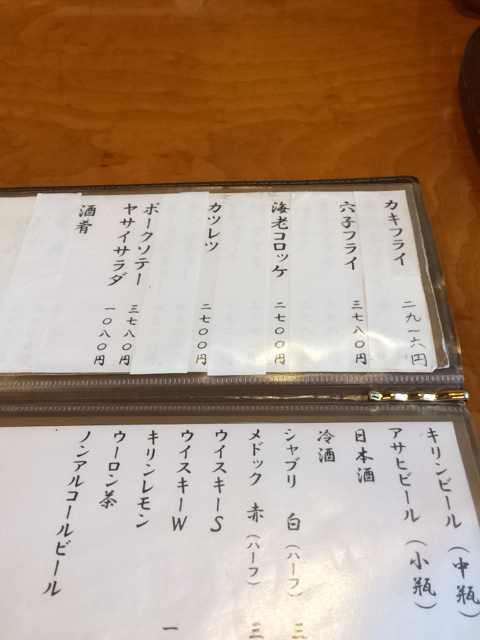 カキフライ 二九一六円
穴子フライ 三七八〇円
海老コロッケ 二七〇〇円
カツレツ 二七〇〇円
ポークソテー 三七八〇円
ヤサイサラダ 一〇八〇円
酒肴
キリンビール(中瓶)
アサヒビール(小瓶)
日本酒
冷酒
シャブリ 白(ハーフ) 三
メドック 赤(ハーフ) 三
ウイスキーS
ウイスキーW 一
キリンレモン
ウーロン茶
ノンアルコールビール